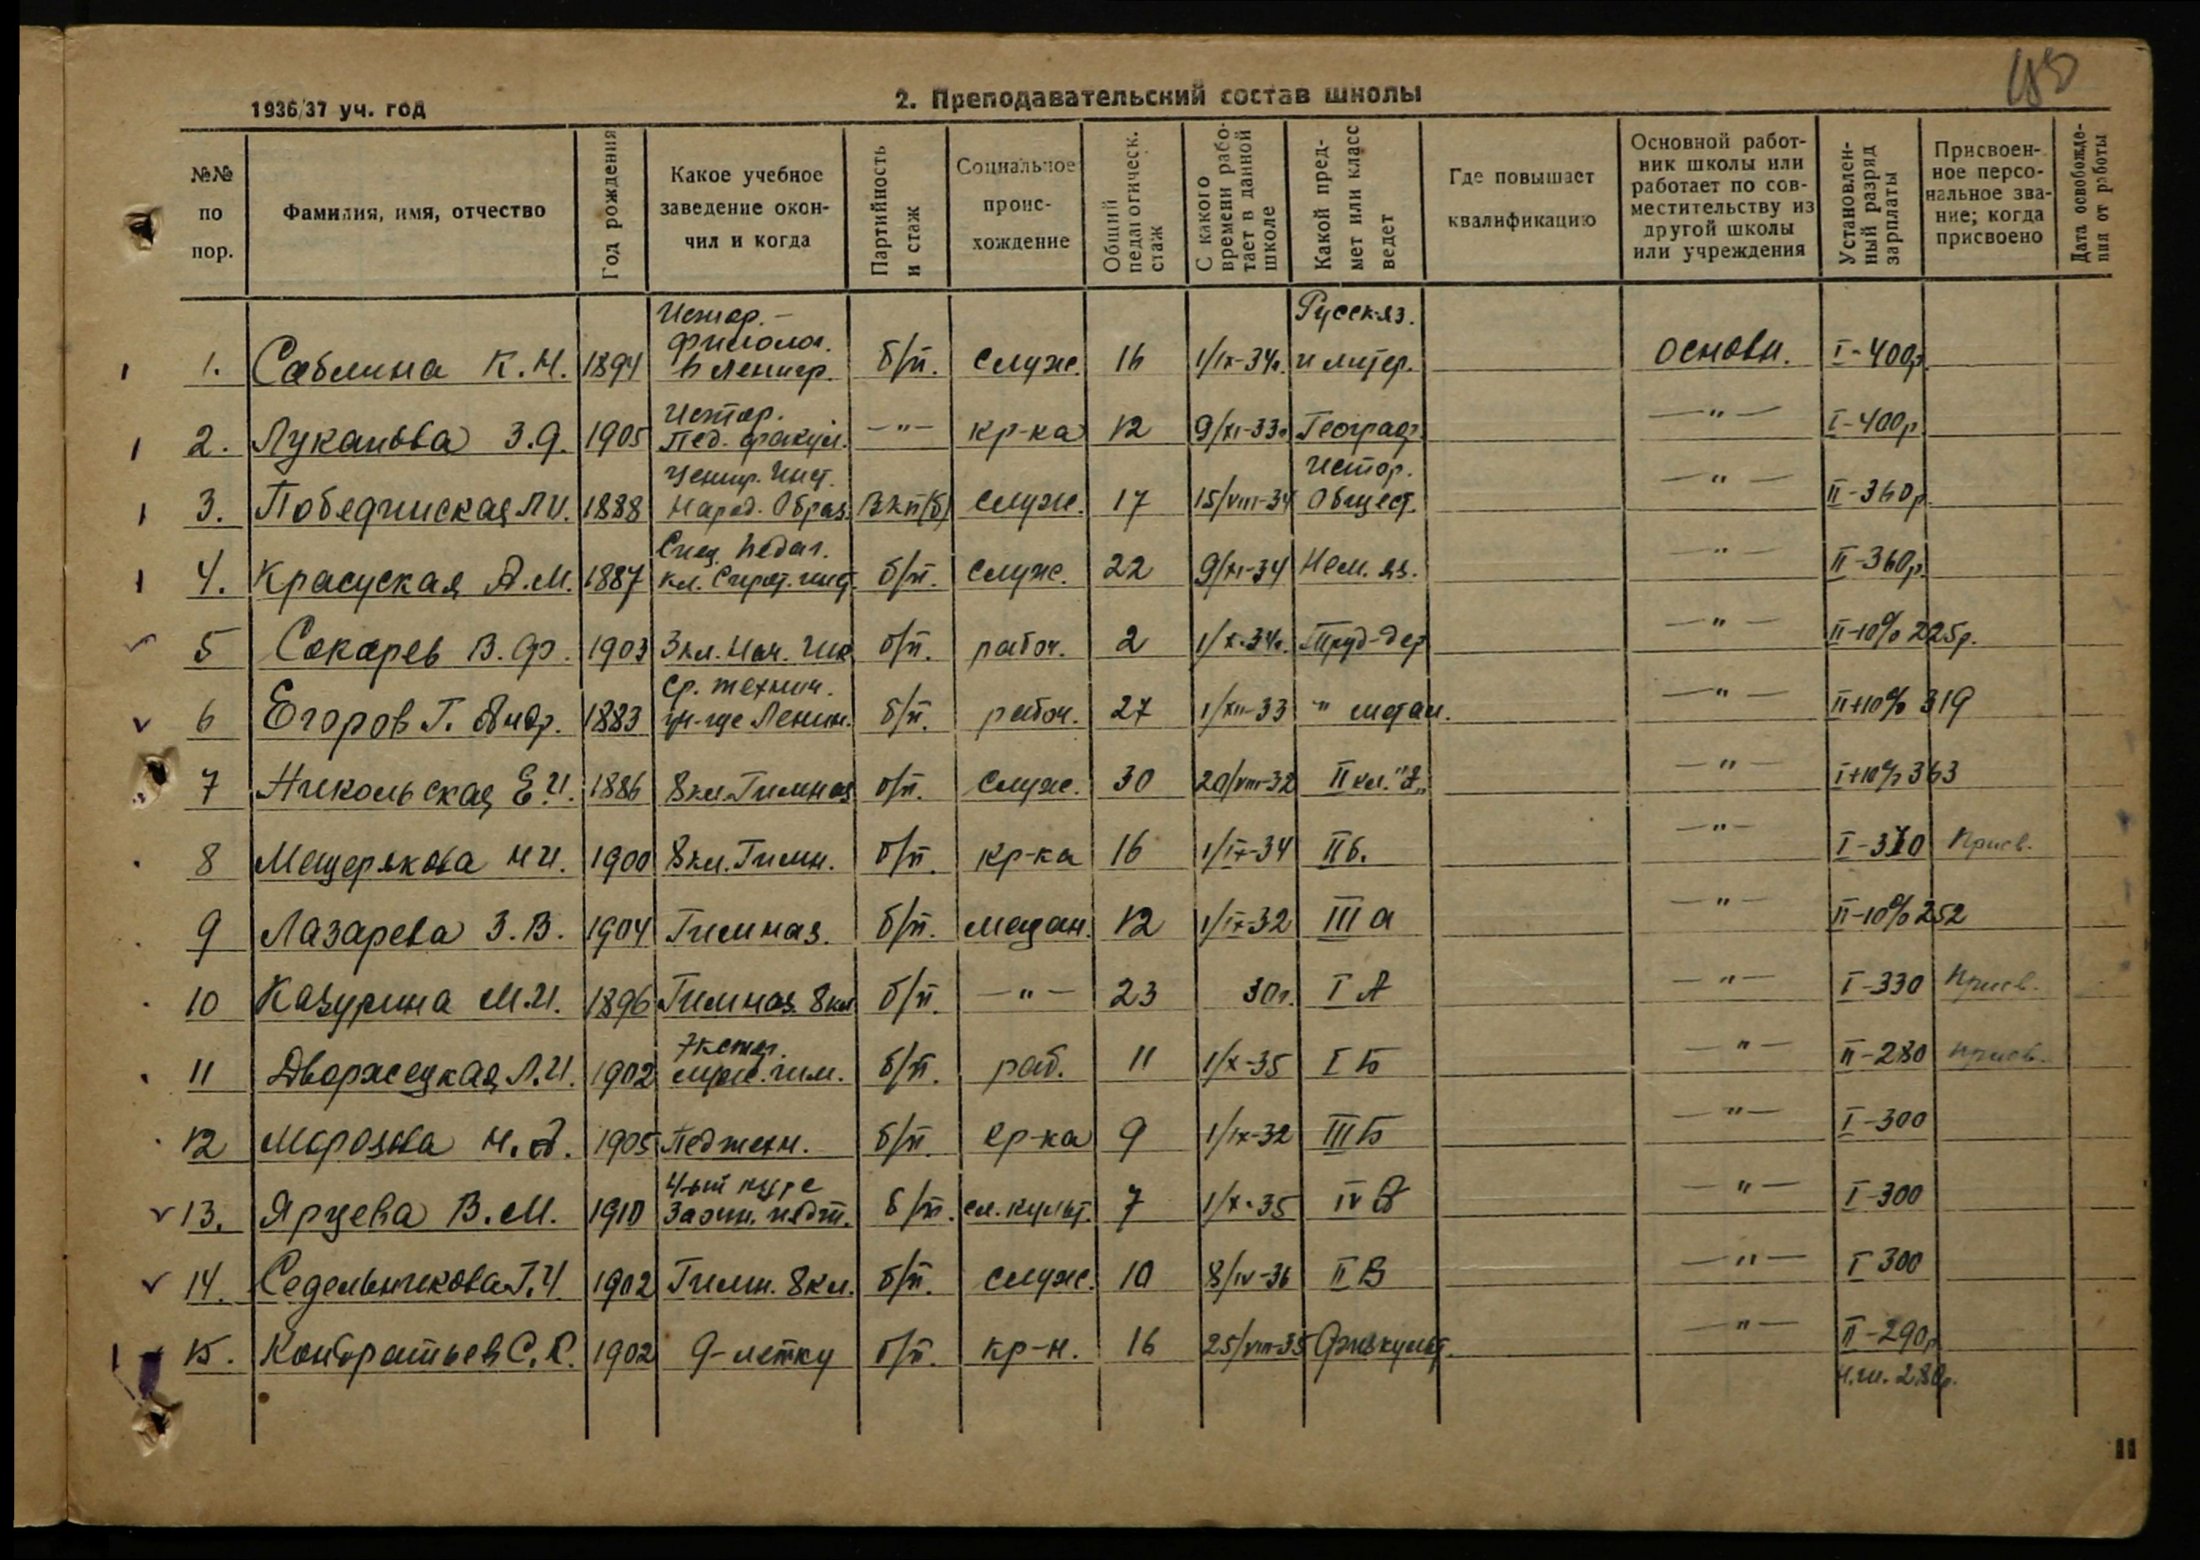 48
1936/37 уч. год
2. Преподавательский состав школы
№№ по пор.
Фамилия, имя, отчество
Год рождения
Какое учебное заведение окончил и когда
Партийность и стаж
Социальное происхождение
Общий педагогическ. стаж
С какого времени работает в данной школе
Какой предмет или класс ведет
Где повышает квалификацию
Основной работник школы или работает по совместительству из другой школы или учреждения
Установленный разряд зарплаты
Присвоенное персональное звание; когда присвоено
Дата освобождения от работы
1. Саблина К.Н. 1894 Истор.-филолог. в Ленингр. б/п. служ. 16 1/IX-34г. Русск.яз. и литер. основн. I-400р
2. Луканова З.Д. 1905 Истор. Пед. факул. —"— кр-ка 12 9/XI-33г Географ. —"— I-400р
3. Победчинская Л.И. 1888 Центр. Инст. Народ. Образ. ВКП(б) служ. 17 15/VIII-34 Истор. Общест. —"— II-360р.
4. Красуская А.М. 1887 Спец. педаг. кл. Сирот. инст. б/п. служ. 22 9/XI-34 Нем. яз. —"— II-360р.
5 Сокарев В.Ф. 1903 3кл. Нач. б/п. рабоч. 2 1/X-34г. Труд-дер —"— II-10% 225р.
6 Егоров Г. Андр. 1883 Ср. технич. Ленин. б/п. рабоч. 27 1/XII-33 " метал. —"— II+10% 319
7 Никольская Е.И. 1886 8кл.Гимназ б/п. служ. 30 20/VIII-32 II кл. "А" —"— I+10% 363
8 Мещерякова Н.И. 1900 8кл. Гимн. б/п. кр-ка 16 1/IX-34 II б. —"— I-330 Присв.
9 Лазарева З.В. 1904 Гимназ. б/п. мещан. 12 1/IX-32 III а —"— II-10% 252
10 Казурина М.И. 1896 Гимназ. 8кл б/п. —"— 23 30г. I А —"— I-330 Присв.
11 Дворжецкая Л.И. 1902 Экстер. гим. б/п. раб. 11 1/X-35 I Б —"— II-280 Присв.
12 Морозова Н.А. 1905 Педтехн. б/п. кр-ка 9 1/IX-32 III Б —"— I-300
13. Ярцева В.М. 1910 4-ый курс Заочн. педт. б/п. сл. культ. 7 1/X-35 IV А —"— I-300
14. Седельникова Г.И. 1902 Гимн. 8кл. б/п. служ. 10 8/IV-36 II В —"— I 300
15. Кондратьев С.К. 1902 9-летку б/п. кр-н. 16 25/VIII-35 Физкульт. —"— II-290р
н.ш. 280р.
11